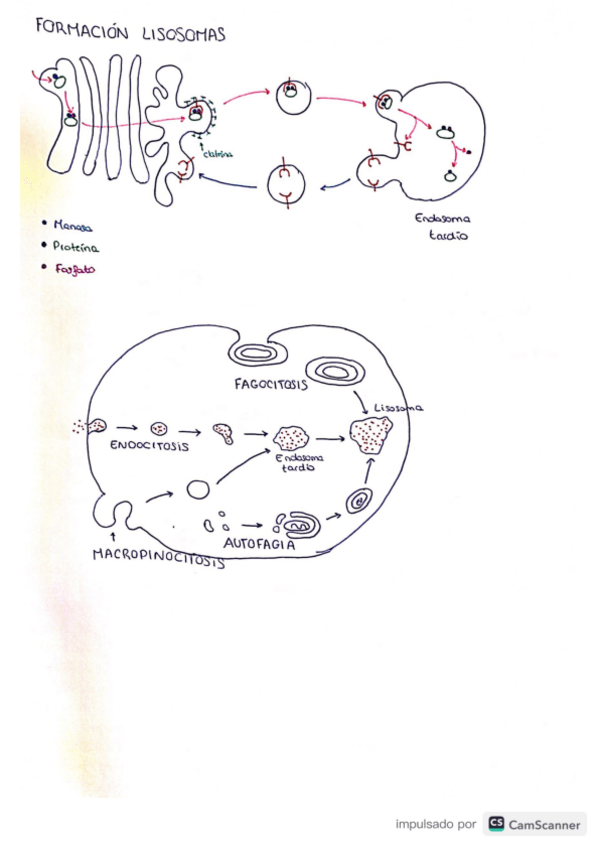 FORMACIÓN LISOSOMAS
clatrina
Endosoma
tardío
• Manosa
• Proteína
• Fosfato
FAGOCITOSIS
Lisosoma
ENDOCITOSIS
Endosoma
tardío
AUTOFAGIA
MACROPINOCITOSIS
impulsado por CS CamScanner